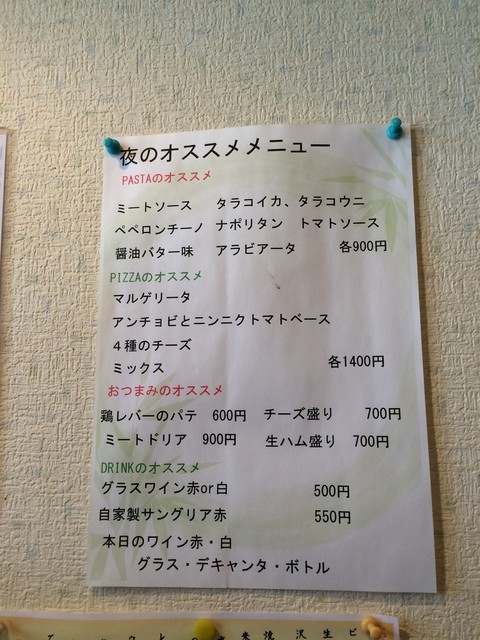 夜のオススメメニュー
PASTAのオススメ
ミートソース　タラコイカ、タラコウニ
ペペロンチーノ　ナポリタン　トマトソース
醤油バター味　アラビアータ　各900円
PIZZAのオススメ
マルゲリータ
アンチョビとニンニクトマトベース
４種のチーズ
ミックス　各1400円
おつまみのオススメ
鶏レバーのパテ　600円　チーズ盛り　700円
ミートドリア　900円　生ハム盛り　700円
DRINKのオススメ
グラスワイン赤or白　500円
自家製サングリア赤　550円
本日のワイン赤・白
グラス・デキャンタ・ボトル